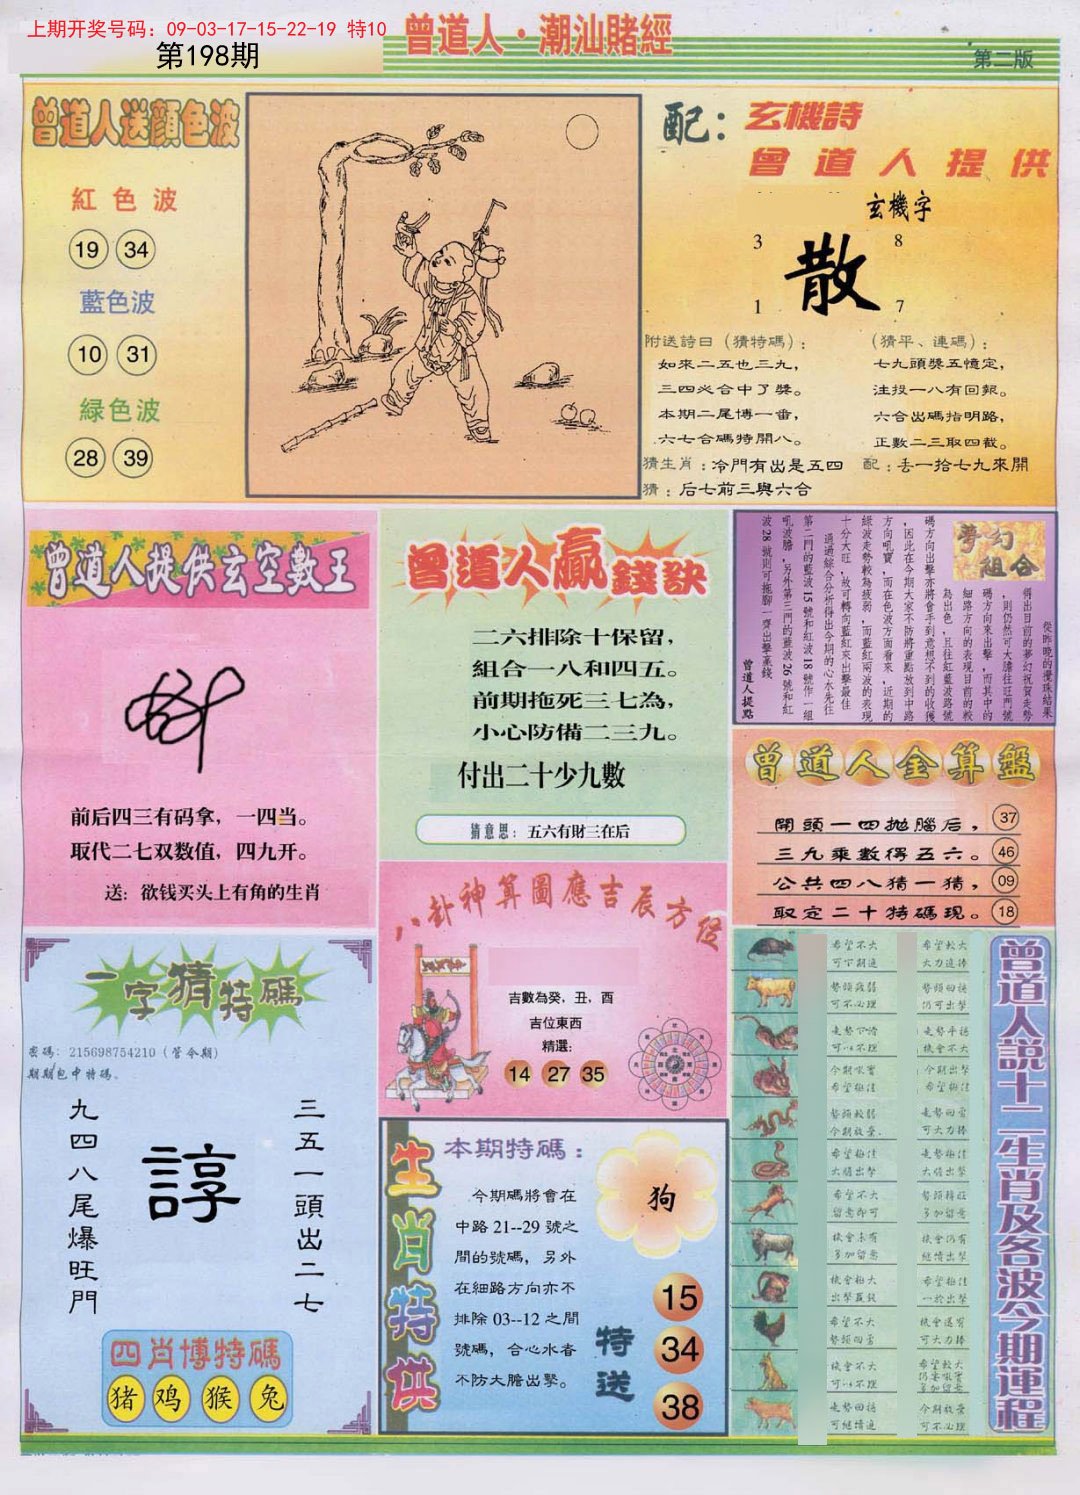 上期开奖号码：09-03-17-15-22-19 特10
第198期
曾道人·潮汕賭經
第二版
曾道人送顏色波
紅色波
19 34
藍色波
10 31
緑色波
28 39
配：玄機詩
曾道人提供
玄機字
3 8
散
1 7
附送詩曰（猜特碼）：
如來二五也三九，
三四必合中了獎。
本期二尾博一番，
六七合碼特開八。
（猜平、連碼）：
七九頭獎五憶定，
注投一八有回報。
六合出碼指明路，
正數二三取四截。
猜生肖：冷門有出是五四
配：丢一拾七九來開
猜：后七前三與六合
曾道人提供玄空數王
前后四三有码拿，一四当。
取代二七双数值，四九开。
送：欲钱买头上有角的生肖
曾道人贏錢訣
二六排除十保留，
組合一八和四五。
前期拖死三七為，
小心防備二三九。
付出二十少九數
猜意思：五六有財三在后
夢幻組合
從昨晚的攪珠結果
得出目前的夢幻祝賀走勢
，則仍然可大膽往旺門號
碼方向來出擊，而其中的
細路方向的表現目前的較
為出色，且往紅藍波路號
碼方向出擊亦將會手到意想不到的收獲
，因此在今期大家不防將重點放到中路
方向吼寶，而在色波方面看來，近期的
綠波走勢較為疲弱，而藍紅兩波的表現
十分大旺，故可轉向藍紅來出擊最佳
通過綜合分析得出今期的心水先往
第二門的藍波15號和紅波18號作一組
吼波膽，另外第三門的藍波26號和紅
波28號則可拖腳一齊出擊贏錢
曾道人提點
曾道人金算盤
開頭一四拋腦后，37
三九乘數得五六。46
公共四八猜一猜，09
取定二十特碼現。18
八卦神算圖應吉辰方位
吉數為癸，丑，酉
吉位東西
精選：
14 27 35
一字猜特碼
密碼：215698754210（管今期）
期期包中特碼、
九四八尾爆旺門
諄
三五一頭出二七
四肖博特碼
猪 鸡 猴 兔
生肖特供
本期特碼：
今期碼將會在
中路 21--29 號之
間的號碼，另外
在細路方向亦不
排除 03--12 之間
號碼，合心水者
不防大膽出擊。
狗
特送
15
34
38
曾道人說十二生肖及各波今期運程
希望不大
可下期進
希望較大
大力追捧
勢頭疲弱
可不必理
勢頭回穩
仍可出擊
走勢平穩
機會不大
今期吼實
希望極佳
今期出擊
希望極佳
勢頭較弱
今期放棄、
走勢回雷
可大力捧
希望極佳
大膽出擊
走勢極佳
大膽出擊
希望不大
留意即可
勢頭轉旺
多加留意
機會未有
多加留意
機會仍有
繼續出擊
機會極大
出擊贏錢
希望極佳
一於出擊
希望不大
勢頭回雷
可大力捧
機會不大
可以不理
希望較大
仍宜吼實
多加留意
走勢回穩
可繼續追
今期放棄
可不必理